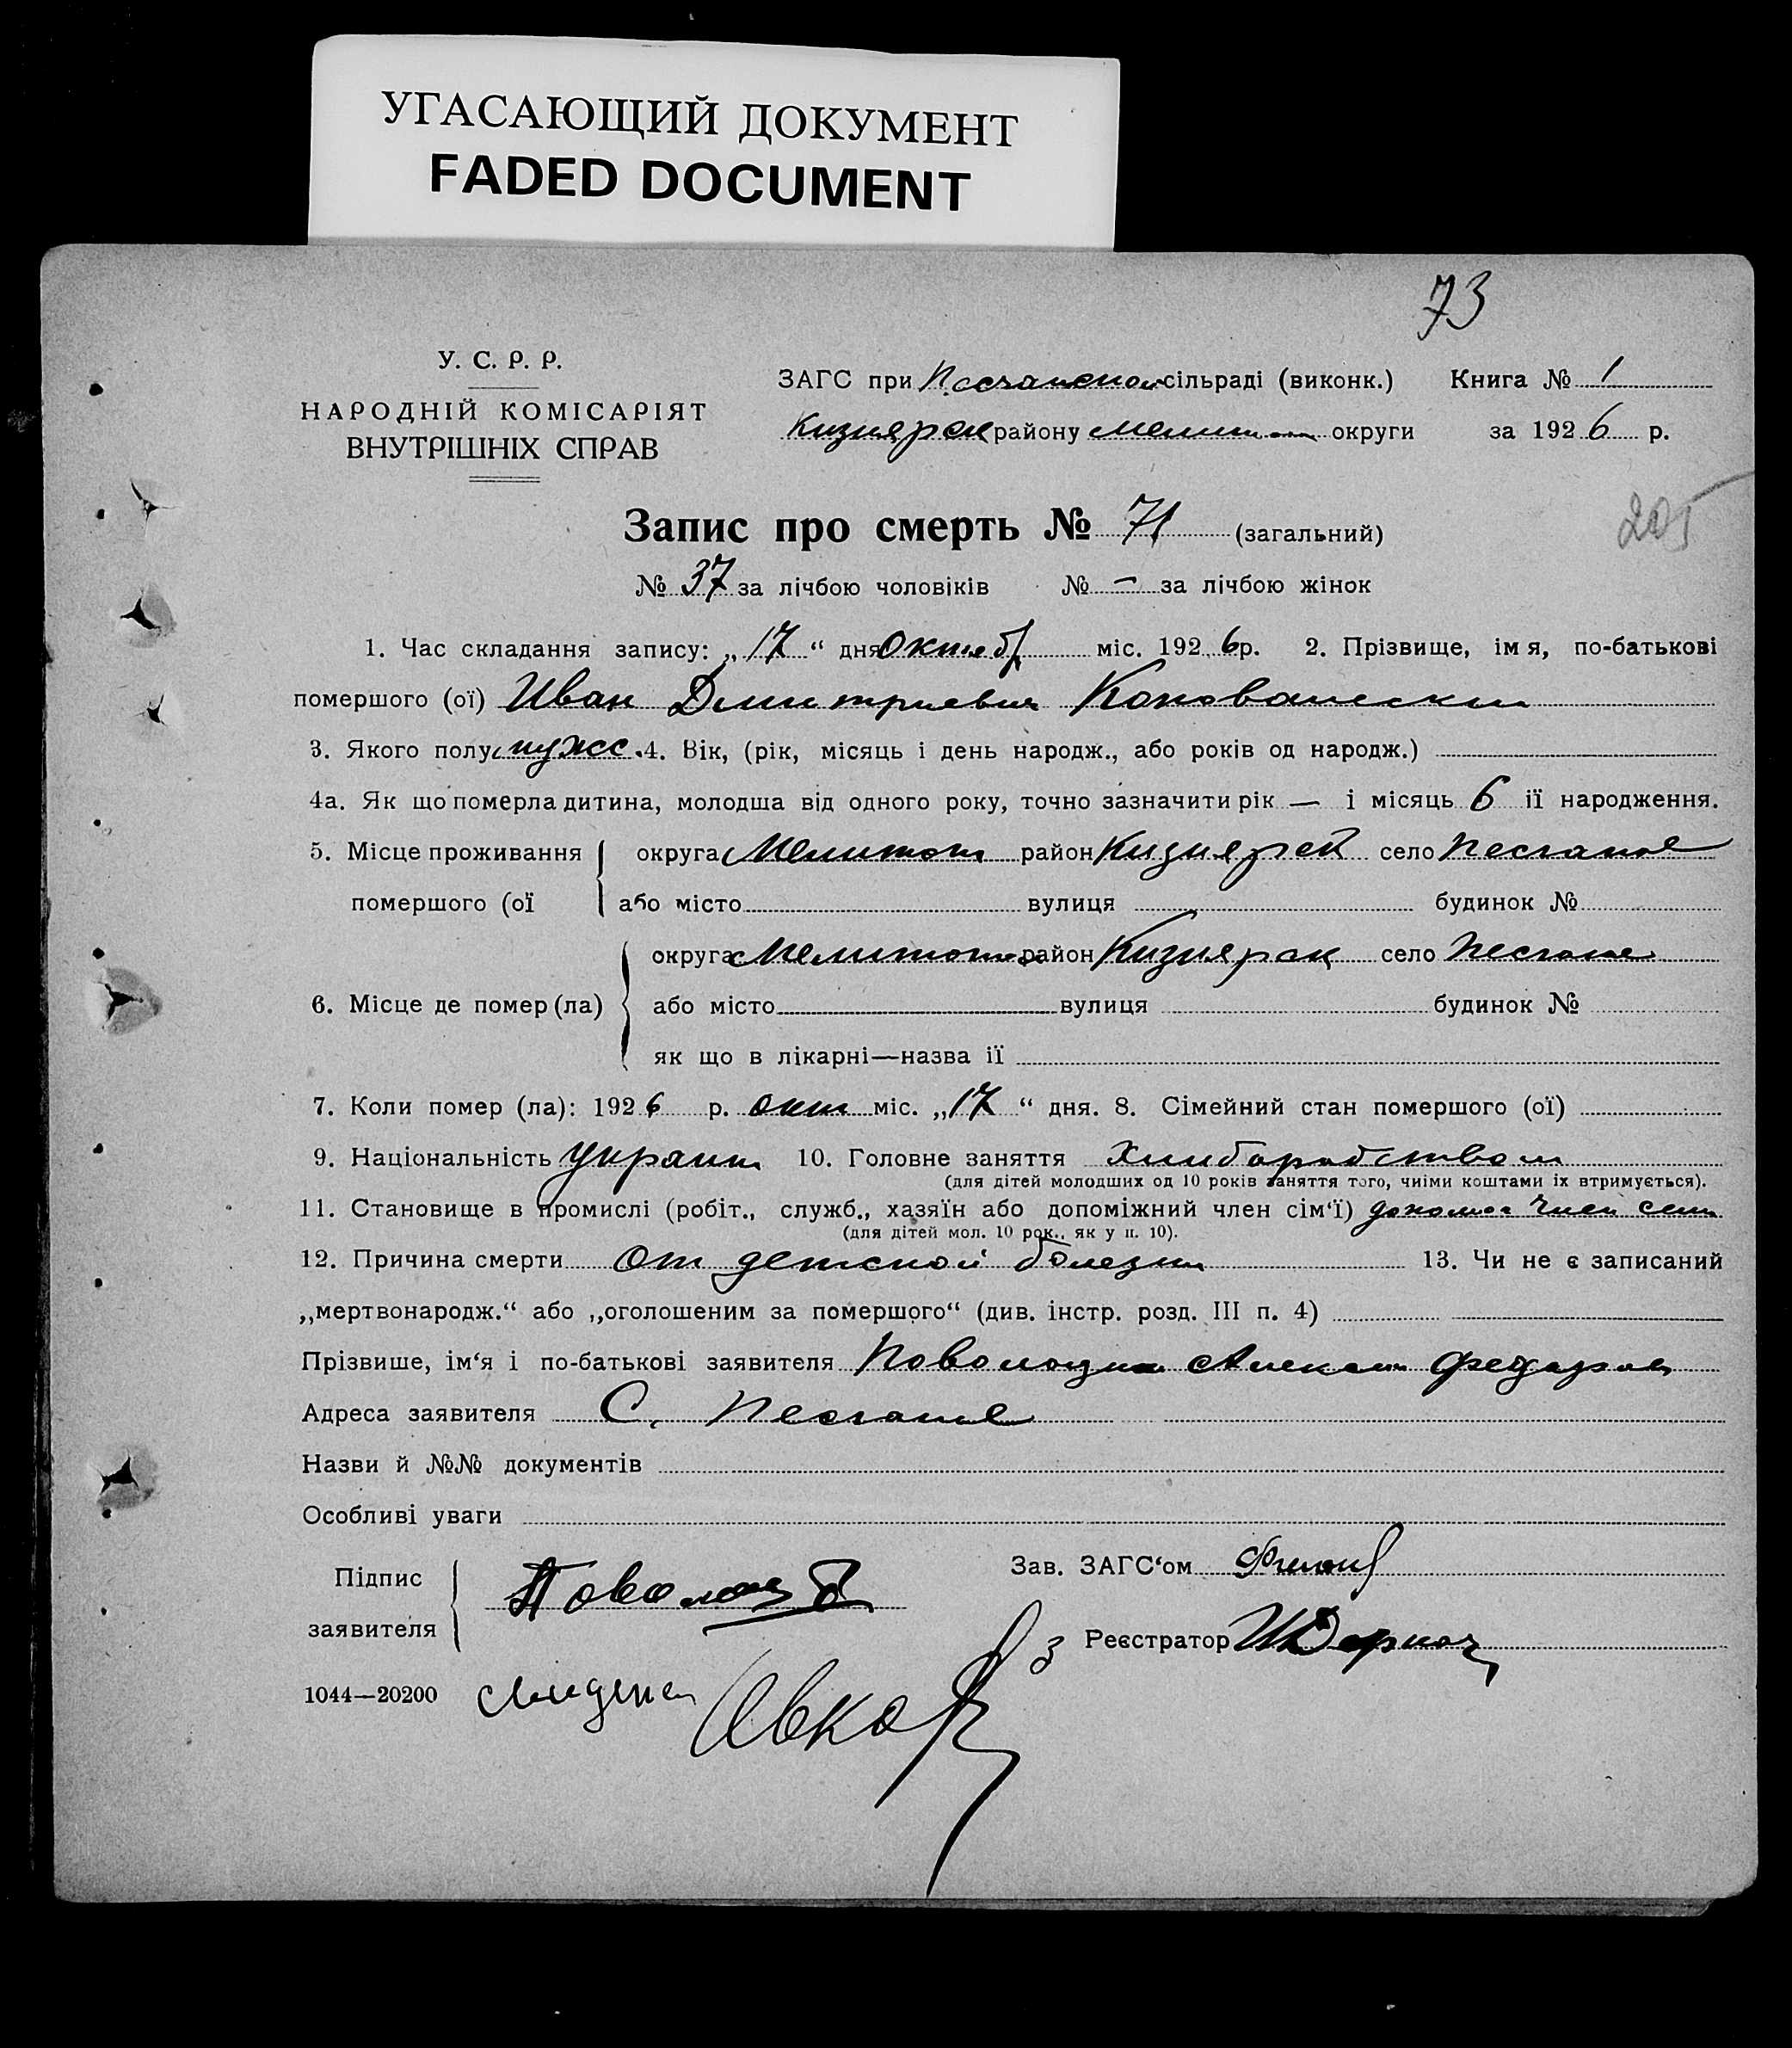 УГАСАЮЩИЙ ДОКУМЕНТ
FADED DOCUMENT
73
У. С. Р. Р.
НАРОДНІЙ КОМІСАРІЯТ
ВНУТРІШНІХ СПРАВ
ЗАГС при Песчанской сільраді (виконк.) Книга № 1
Кизиярск району Мелитоп округи за 1926 р.
205
Запис про смерть № 71 (загальний)
№ 37 за лічбою чоловіків № — за лічбою жінок
1. Час складання запису: „17“ дня октяб міс. 1926 р. 2. Прізвище, імя, по-батькові
помершого (ої) Иван Дмитриевич
3. Якого полу мужс. 4. Вік, (рік, місяць і день народж., або років од народж.)
4а. Як що померла дитина, молодша від одного року, точно зазначити рік — і місяць 6 її народження.
5. Місце проживання округа Мелитоп район Кизиярск село Песчаное
помершого (ої або місто вулиця будинок №
округа Мелитоп район Кизиярск село Песчаное
6. Місце де помер (ла) або місто вулиця будинок №
як що в лікарні—назва ії
7. Коли помер (ла): 1926 р. окт міс. „17“ дня. 8. Сімейний стан помершого (ої)
9. Національність Украин 10. Головне заняття Хлиборобством
(для дітей молодших од 10 років заняття того, чиїми коштами їх втримується).
11. Становище в промислі (робіт., служб., хазяїн або допоміжний член сім‘ї) допомог член сем
(для дітей мол. 10 рок., як у п. 10).
12. Причина смерти От детской болезни 13. Чи не є записаний
„мертвонародж.“ або „оголошеним за помершого“ (див. інстр. розд. III п. 4)
Прізвише, ім‘я і по-батькові заявителя Федоров
Адреса заявителя С. Песчаное
Назви й №№ документів
Особливі уваги
Підпис Зав. ЗАГС‘ом
заявителя Реєстратор
1044—20200